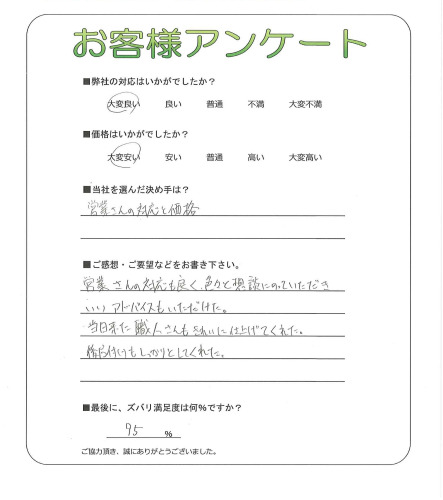 お客様アンケート
■弊社の対応はいかがでしたか？
大変良い 良い 普通 不満 大変不満
■価格はいかがでしたか？
大変安い 安い 普通 高い 大変高い
■当社を選んだ決め手は？
営業さんの対応と価格
■ご感想・ご要望などをお書き下さい。
営業さんの対応も良く、色々と相談にのっていただき
いいアドバイスもいただけた。
当日来た職人さんもきれいに仕上げてくれた。
後片付けもしっかりとしてくれた。
■最後に、ズバリ満足度は何%ですか？
95 %
ご協力頂き、誠にありがとうございました。